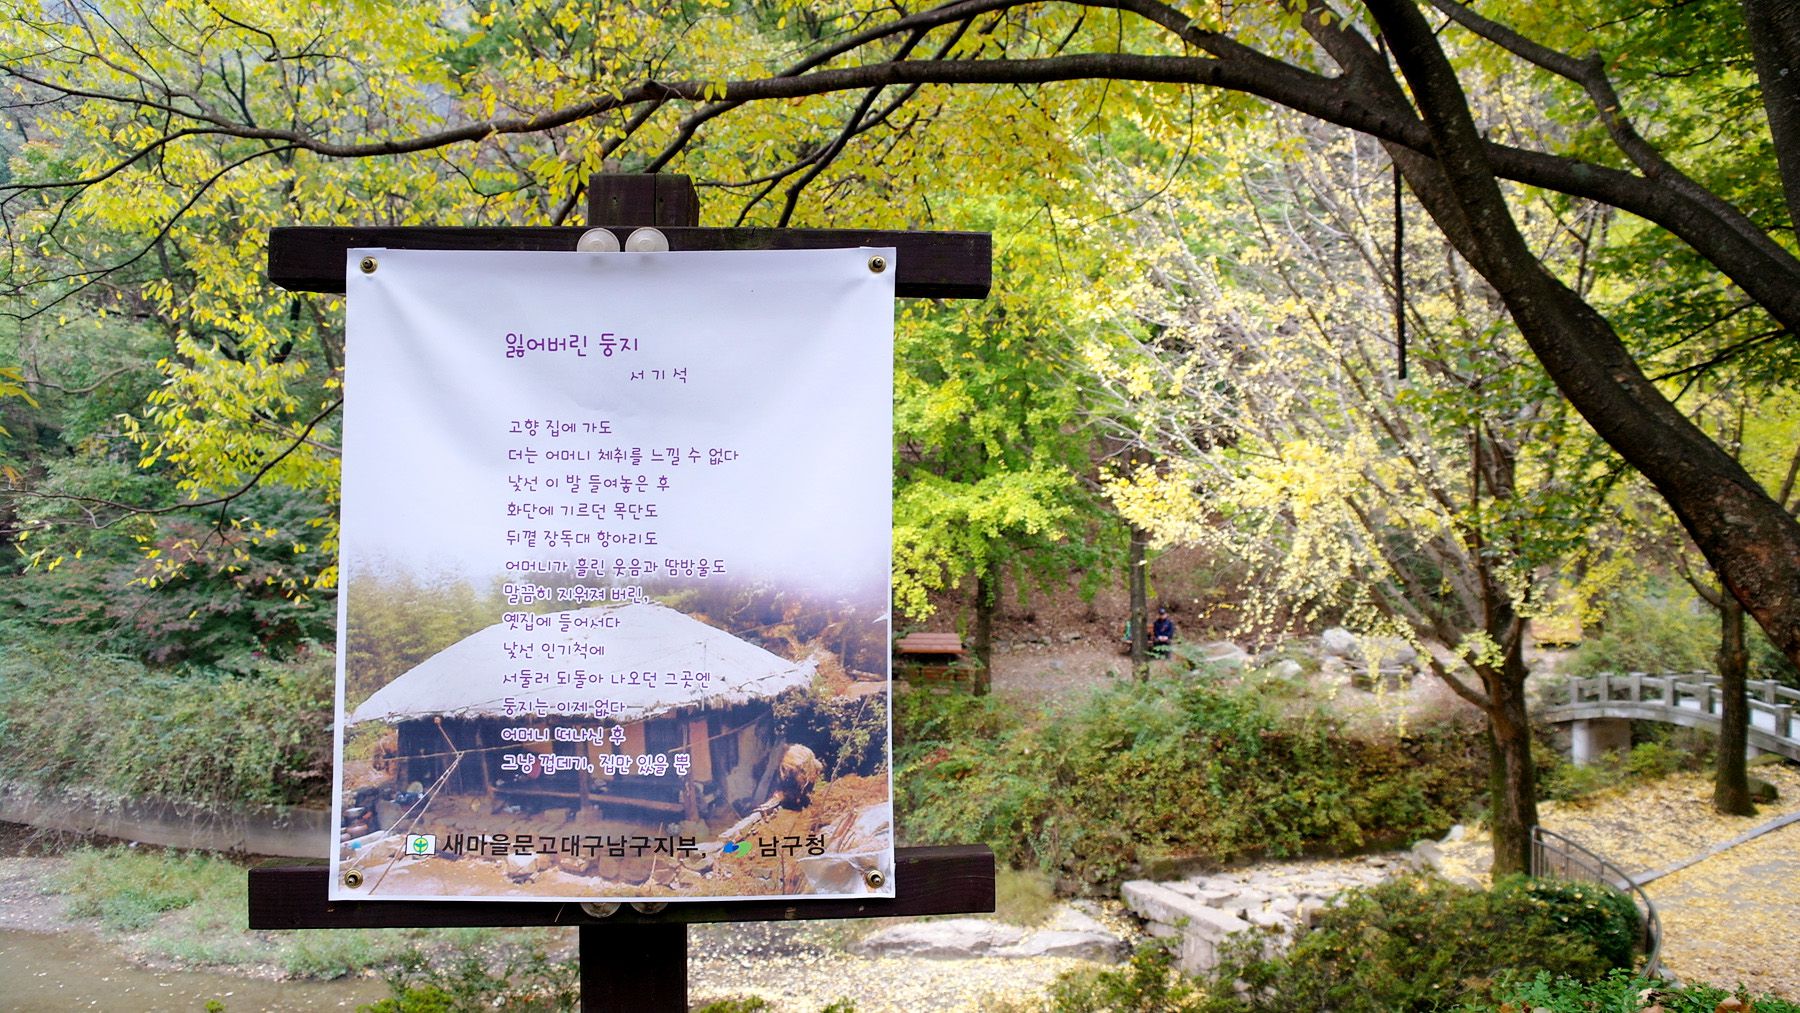 잃어버린 둥지
서 기 석
고향 집에 가도
더는 어머니 체취를 느낄 수 없다
낯선 이 발 들여놓은 후
화단에 기르던 목단도
뒤꼍 장독대 항아리도
어머니가 흘린 웃음과 땀방울도
말끔히 지워져 버린,
옛집에 들어서다
낯선 인기척에
서둘러 되돌아 나오던 그곳엔
둥지는 이제 없다
어머니 떠나신 후
그냥 껍데기, 집만 있을 뿐
새마을문고대구남구지부, 남구청